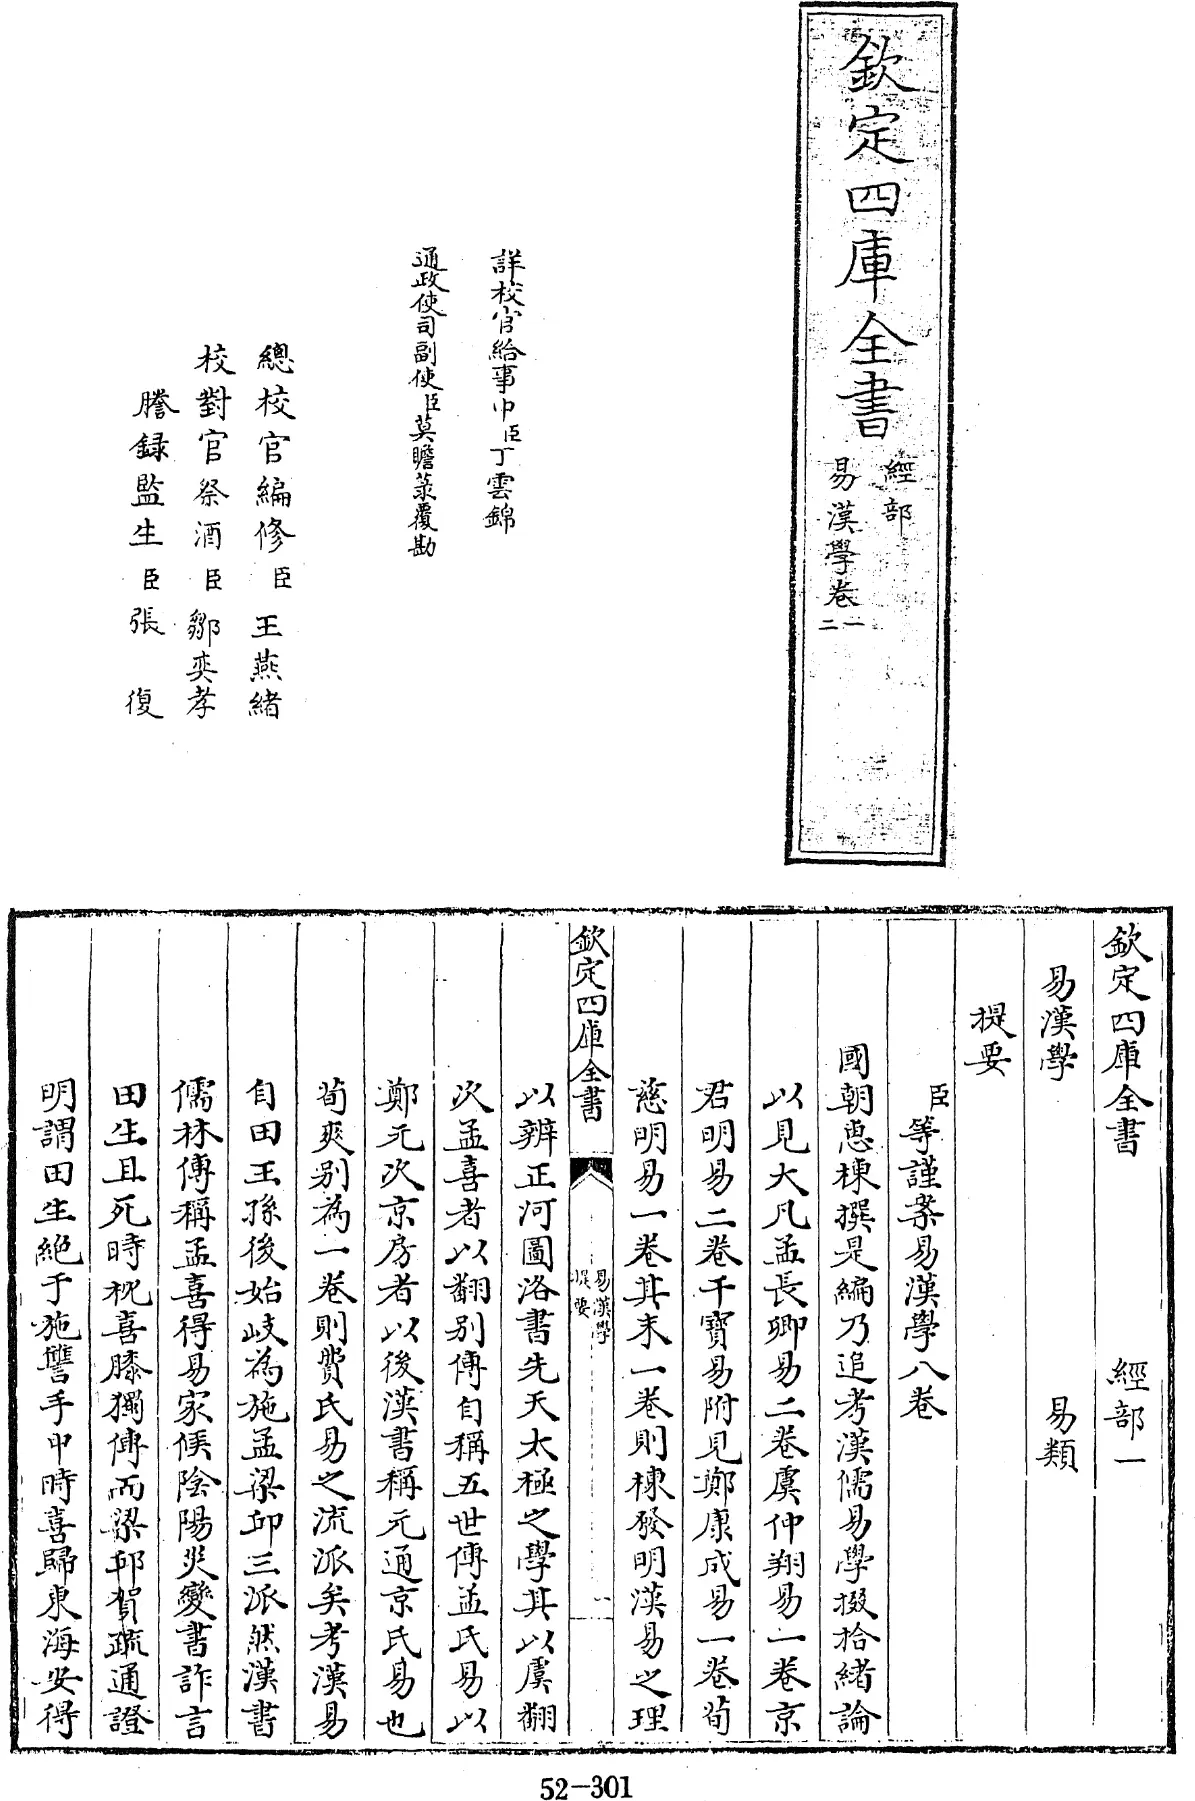 欽定四庫全書
經部
易漢學卷一
二
詳校官給事中臣丁雲錦
通政使司副使臣莫瞻菉覆勘
總校官編修臣王燕緒
校對官祭酒臣鄒奕孝
謄録監生臣張復
欽定四庫全書 經部一
易漢學 易類
提要
臣等謹案易漢學八卷
國朝惠棟撰是編乃追考漢儒易學掇拾緒論
以見大凡孟長卿易二卷虞仲翔易一卷京
君明易二卷干寶易附見鄭康成易一卷荀
慈明易一卷其末一卷則棟發明漢易之理
欽定四庫全書
易漢學
提要
一
以辨正河圖洛書先天太極之學其以虞翻
次孟喜者以翻别傳自稱五世傳孟氏易以
鄭元次京房者以後漢書稱元通京氏易也
荀爽别為一卷則費氏易之流派矣考漢易
自田王孫後始歧為施孟梁邱三派然漢書
儒林傳稱孟喜得易家𠋫陰陽災變書詐言
田生且死時枕喜膝獨傳而梁邱賀疏通證
明謂田生絶于施讐手中時喜歸東海安得
52-301